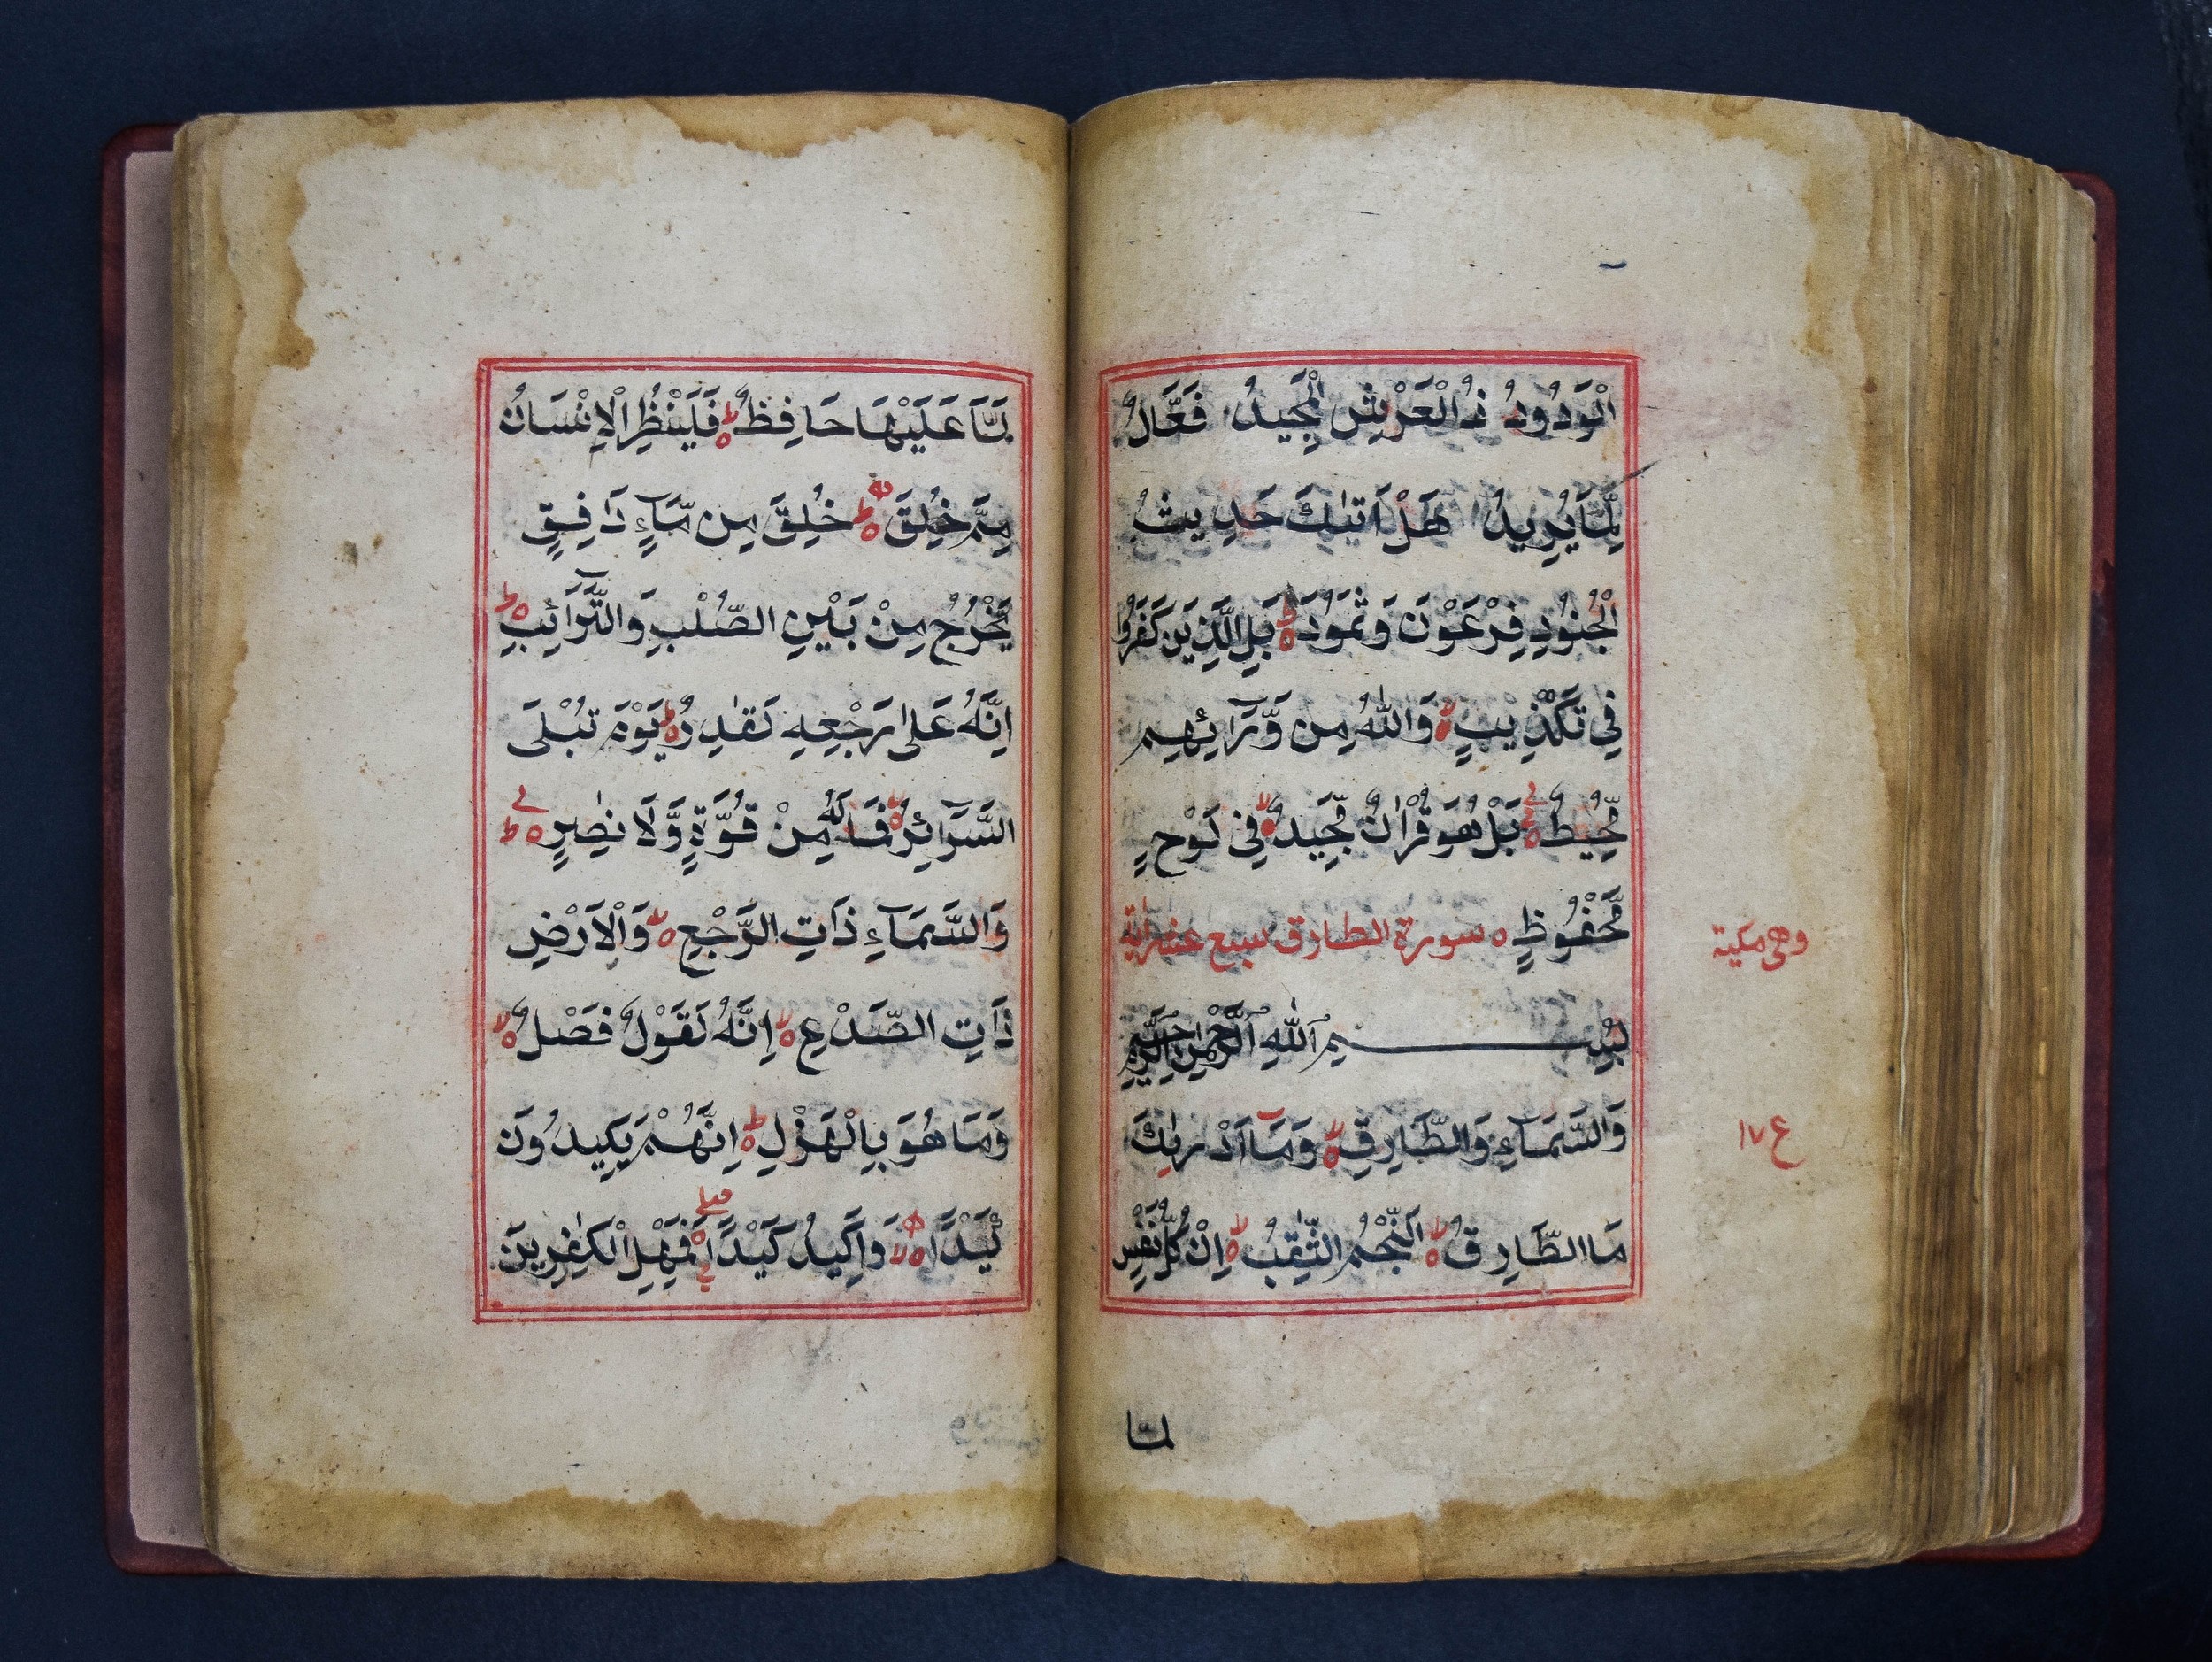 الْوَدُوْدُ ذُو الْعَرْشِ الْمَجِيْدُ فَعَّالٌ
لِّمَا يُرِيْدُ هَلْ اَتٰىكَ حَدِيْثُ
الْجُنُوْدِ فِرْعَوْنَ وَثَمُوْدَ ؕ بَلِ الَّذِيْنَ كَفَرُوْا
فِيْ تَكْذِيْبٍ ۙ وَّاللّٰهُ مِنْ وَّرَآئِهِمْ
مُّحِيْطٌ ۚ بَلْ هُوَ قُرْاٰنٌ مَّجِيْدٌ ۙ فِيْ لَوْحٍ
مَّحْفُوْظٍ ه سورة الطارق سبع عشراية
وهى مكية
بِسْمِ اللّٰهِ الرَّحْمٰنِ الرَّحِيْمِ
وَالسَّمَآءِ وَالطَّارِقِ ۙ وَمَآ اَدْرٰىكَ
ع ١٧
مَا الطَّارِقُ ۙ النَّجْمُ الثَّاقِبُ ۙ اِنْ كُلُّ نَفْسٍ
لمّا
لَمَّا عَلَيْهَا حَافِظٌ ؕ فَلْيَنْظُرِ الْاِنْسَانُ
مِمَّ خُلِقَ ؕ خُلِقَ مِنْ مَّآءٍ دَافِقٍ
يَّخْرُجُ مِنْ بَيْنِ الصُّلْبِ وَالتَّرَآئِبِ ؕ
اِنَّهُ عَلٰى رَجْعِهِ لَقَادِرٌ ؕ يَوْمَ تُبْلَى
السَّرَآئِرُ ۙ فَمَا لَهُ مِنْ قُوَّةٍ وَّلَا نَاصِرٍ ؕ
وَالسَّمَآءِ ذَاتِ الرَّجْعِ ۙ وَالْاَرْضِ
ذَاتِ الصَّدْعِ ۙ اِنَّهُ لَقَوْلٌ فَصْلٌ ۙ
وَّمَا هُوَ بِالْهَزْلِ ؕ اِنَّهُمْ يَكِيْدُوْنَ
كَيْدًا ۙ وَّاَكِيْدُ كَيْدًا ۚ فَمَهِّلِ الْكٰفِرِيْنَ